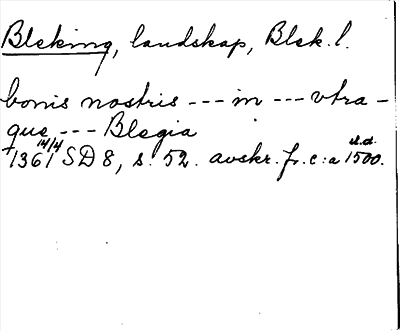 Bleking, landskap, Blek. l.
bonis nostris --- in --- vtra-
que --- Blegia
1361 14/4 SD 8, s. 52. avskr. fr. c:a 1500.